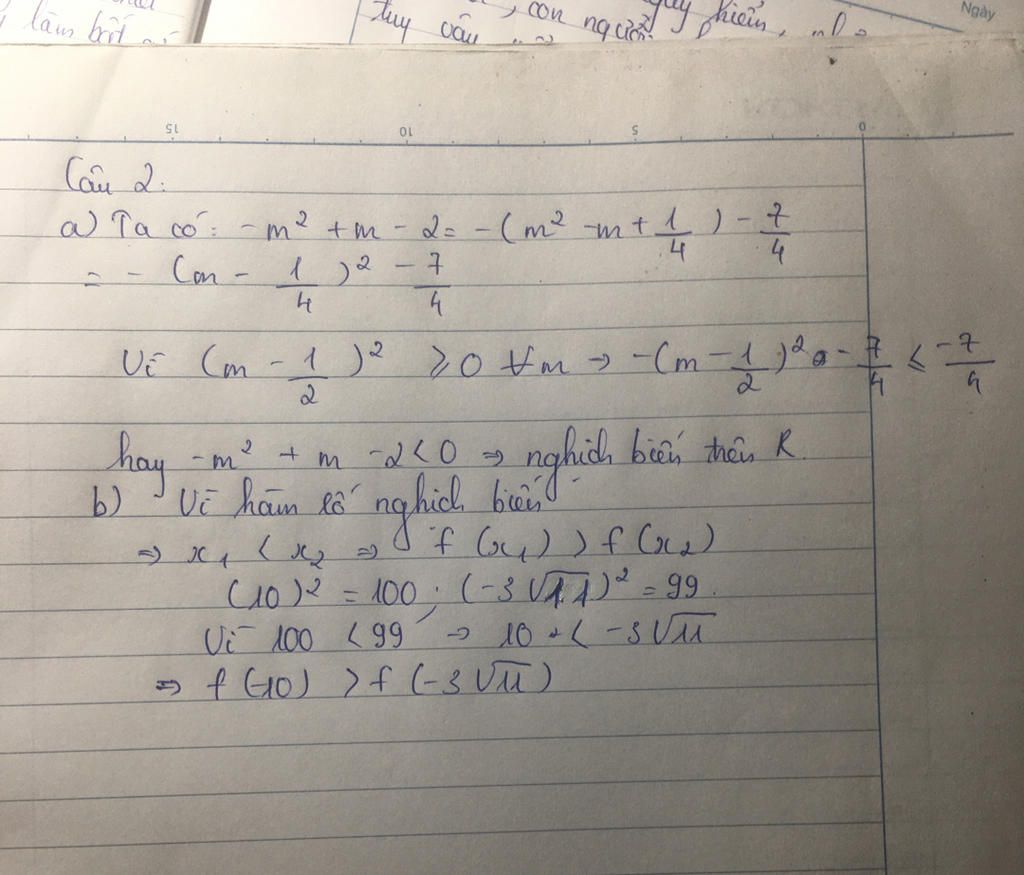 làm bốt
tuy vâu
, con người
Ngày
15 10 5 0
Câu 2:
a) Ta có: -m² + m - 2 = -(m² - m + 1/4) - 7/4
= - (m - 1/4)² - 7/4
Vì (m - 1/2)² ≥ 0 ∀m → -(m - 1/2)² - 7/4 ≤ -7/4
hay -m² + m - 2 < 0 ⇒ nghịch biến trên R.
b) Vì hàm số nghịch biến
⇒ x₁ < x₂ ⇒ f(x₁) > f(x₂)
(10)² = 100; (-3√11)² = 99.
Vì 100 < 99 → 10 < -3√11
⇒ f(-10) > f(-3√11)